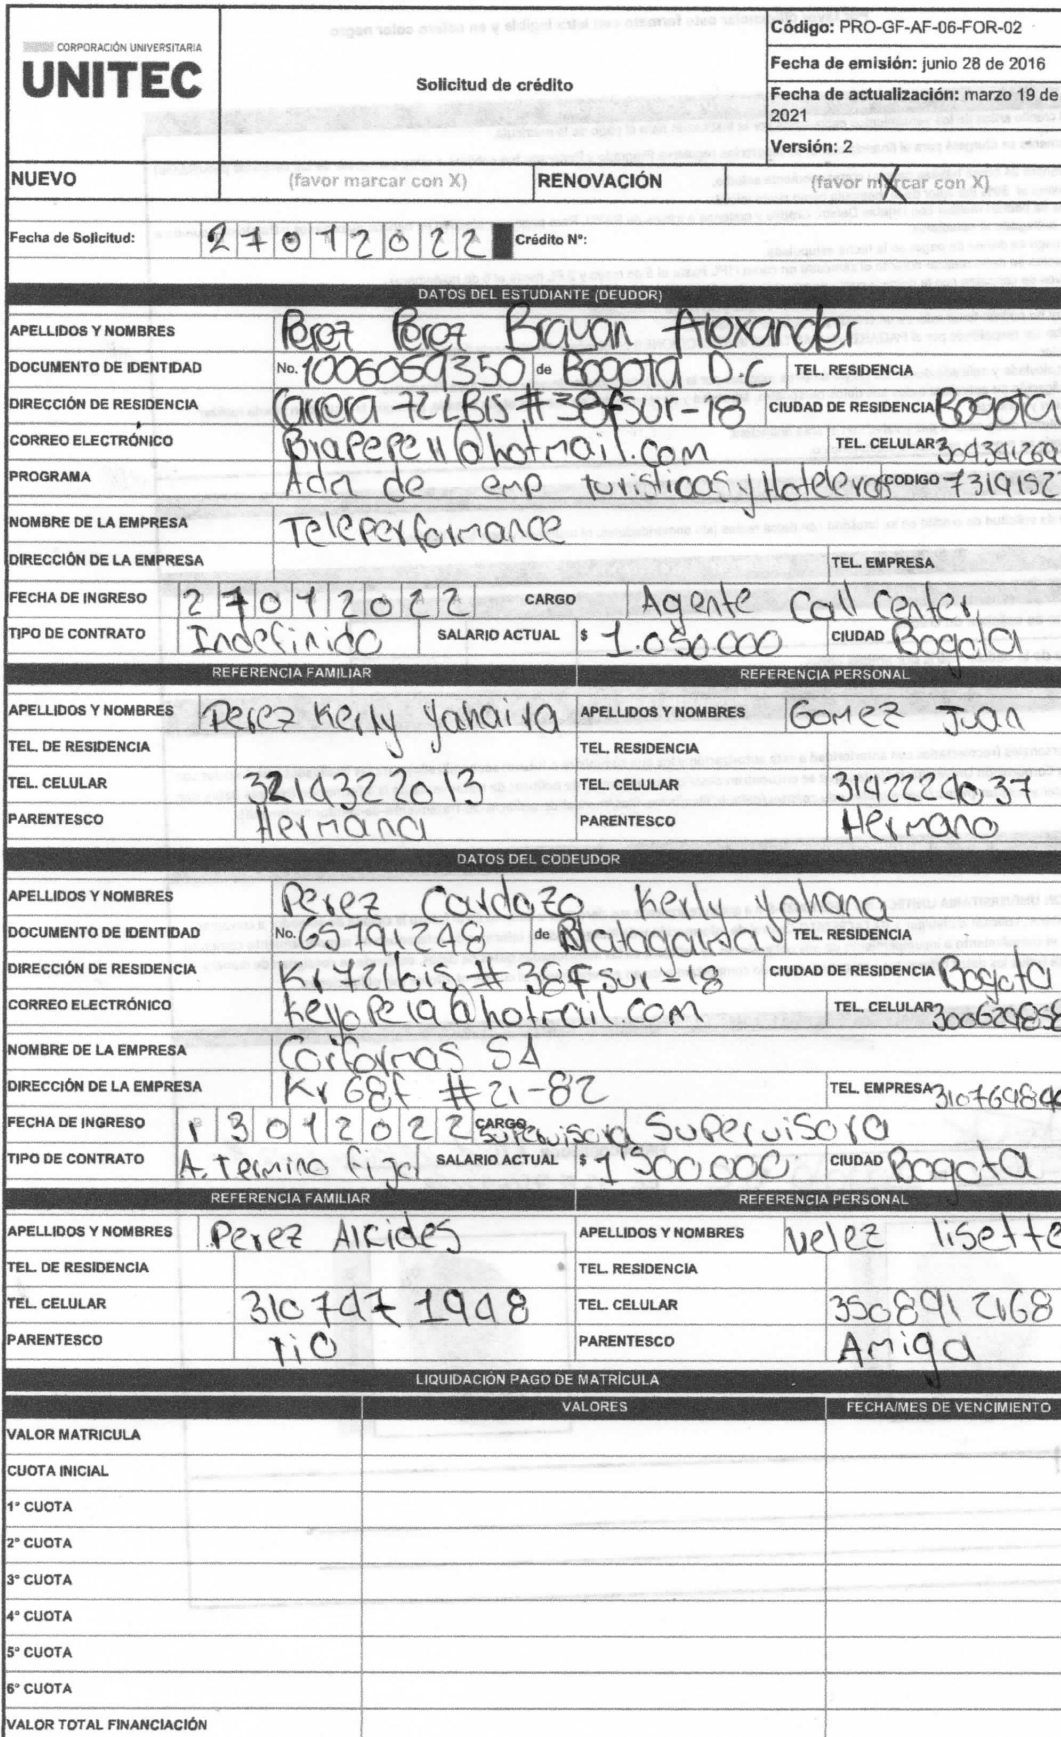 CORPORACIÓN UNIVERSITARIA
UNITEC
Solicitud de crédito
Código: PRO-GF-AF-06-FOR-02
Fecha de emisión: junio 28 de 2016
Fecha de actualización: marzo 19 de 2021
Versión: 2
NUEVO (favor marcar con X) RENOVACIÓN (favor marcar con X) X
Fecha de Solicitud: 27012022 Crédito N°:
DATOS DEL ESTUDIANTE (DEUDOR)
APELLIDOS Y NOMBRES Perez Perez Brayan Alexander
DOCUMENTO DE IDENTIDAD No. 1006069350 de Bogota D.C TEL. RESIDENCIA
DIRECCIÓN DE RESIDENCIA Carrera 72L Bis #38fsur-18 CIUDAD DE RESIDENCIA Bogota
CORREO ELECTRÓNICO Brapepe11@hotmail.com TEL. CELULAR 304341269
PROGRAMA Adm de emp turisticas y Hoteleras CODIGO 7319152
NOMBRE DE LA EMPRESA Teleperformance
DIRECCIÓN DE LA EMPRESA TEL. EMPRESA
FECHA DE INGRESO 27012022 CARGO Agente Call Center
TIPO DE CONTRATO Indefinido SALARIO ACTUAL $ 1.050.000 CIUDAD Bogota
REFERENCIA FAMILIAR REFERENCIA PERSONAL
APELLIDOS Y NOMBRES Perez Kerly Yahaira APELLIDOS Y NOMBRES Gomez Juan
TEL. DE RESIDENCIA TEL. RESIDENCIA
TEL. CELULAR 3214322013 TEL. CELULAR
PARENTESCO Hermana PARENTESCO Hermano
DATOS DEL CODEUDOR
APELLIDOS Y NOMBRES Perez Cardozo Kerly Yohana
DOCUMENTO DE IDENTIDAD No. de Natagaima TEL. RESIDENCIA
DIRECCIÓN DE RESIDENCIA Kr 72l bis #38Fsur-18 CIUDAD DE RESIDENCIA Bogota
CORREO ELECTRÓNICO TEL. CELULAR
NOMBRE DE LA EMPRESA Corformas SA
DIRECCIÓN DE LA EMPRESA Kr 68f #21-82 TEL. EMPRESA
FECHA DE INGRESO 13012022 CARGO Supervisora Supervisora
TIPO DE CONTRATO A. termino fijo SALARIO ACTUAL $ 1'500.000 CIUDAD Bogota
REFERENCIA FAMILIAR REFERENCIA PERSONAL
APELLIDOS Y NOMBRES Perez Alcides APELLIDOS Y NOMBRES Velez lisette
TEL. DE RESIDENCIA TEL. RESIDENCIA
TEL. CELULAR 310 747 1948 TEL. CELULAR 3508912168
PARENTESCO TiO PARENTESCO Amiga
LIQUIDACIÓN PAGO DE MATRÍCULA
VALORES FECHA/MES DE VENCIMIENTO
VALOR MATRICULA
CUOTA INICIAL
1° CUOTA
2° CUOTA
3° CUOTA
4° CUOTA
5° CUOTA
6° CUOTA
VALOR TOTAL FINANCIACIÓN